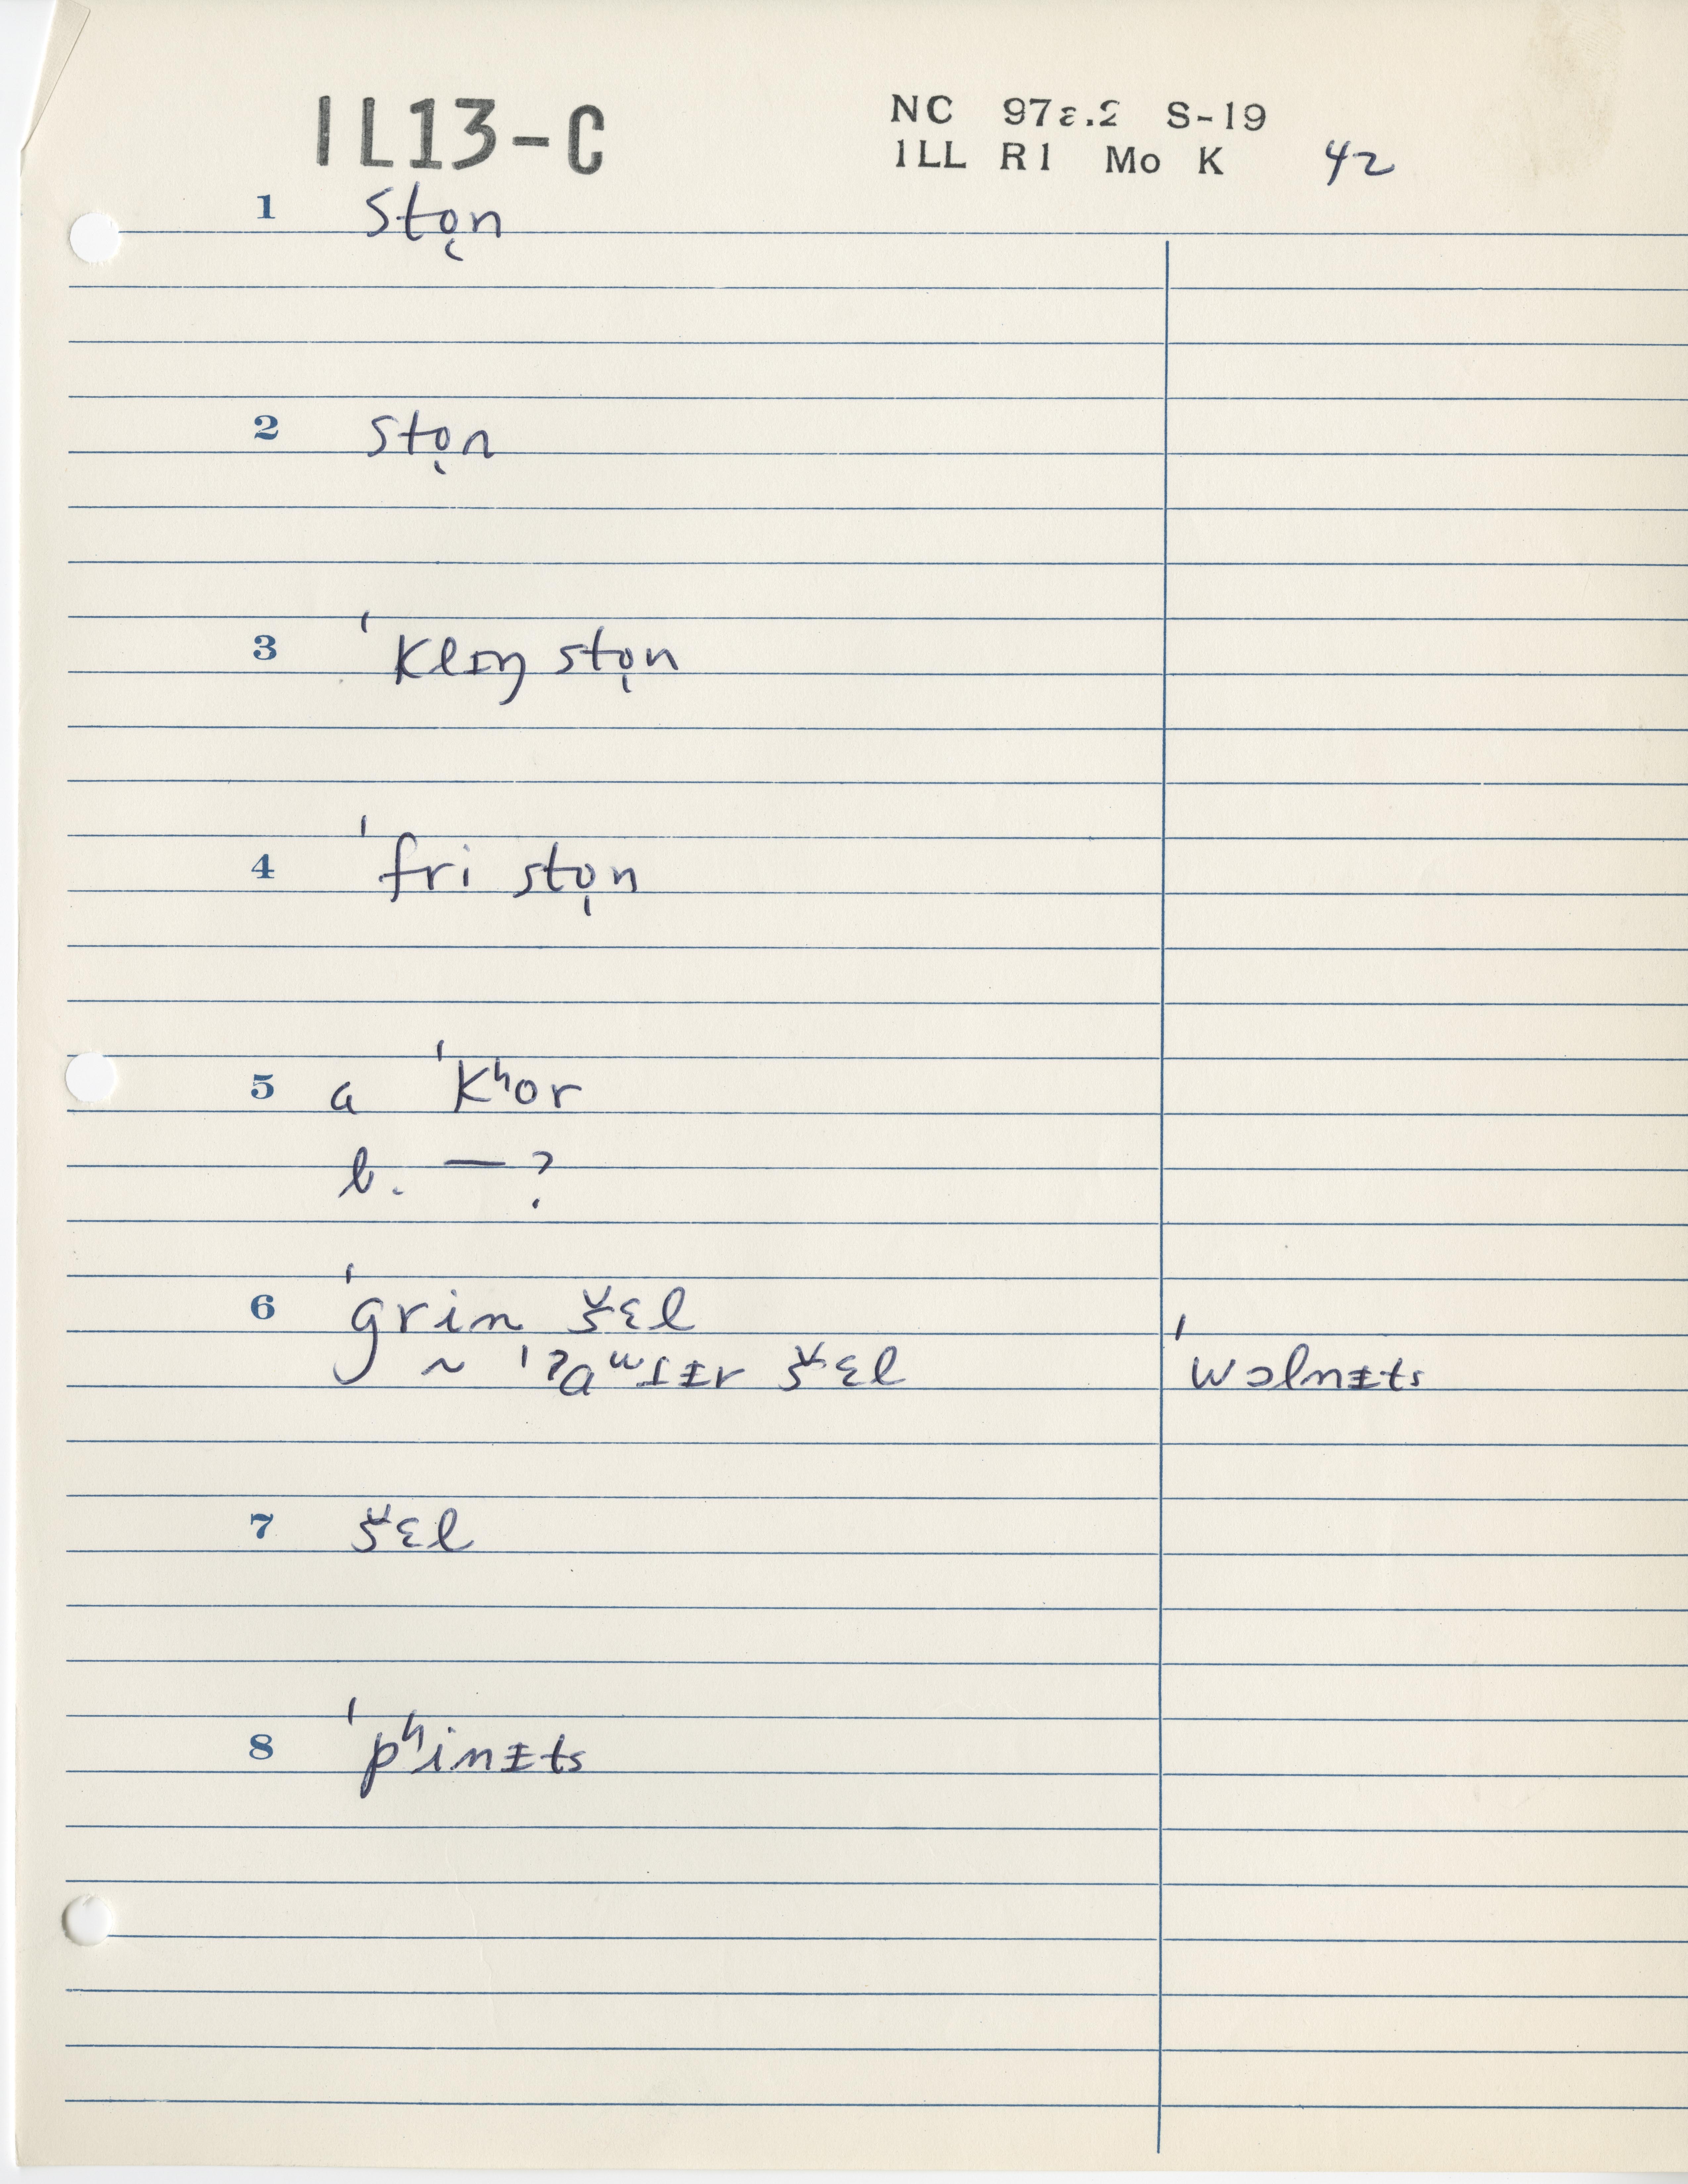 IL13-C
NC 978.2 S-19
ILL R1 Mo K 42
1 sto̜n
2 sto̜n
3 ˈklɪŋ sto̜n
4 ˈfri sto̜n
5 a ˈkʰor
b. — ?
6 ˈgrin š̬ɛl
~ š̬ɛl ˈwɔlnɪ̵ts
7 š̬ɛl
8 ˈpʰinɪ̵ts